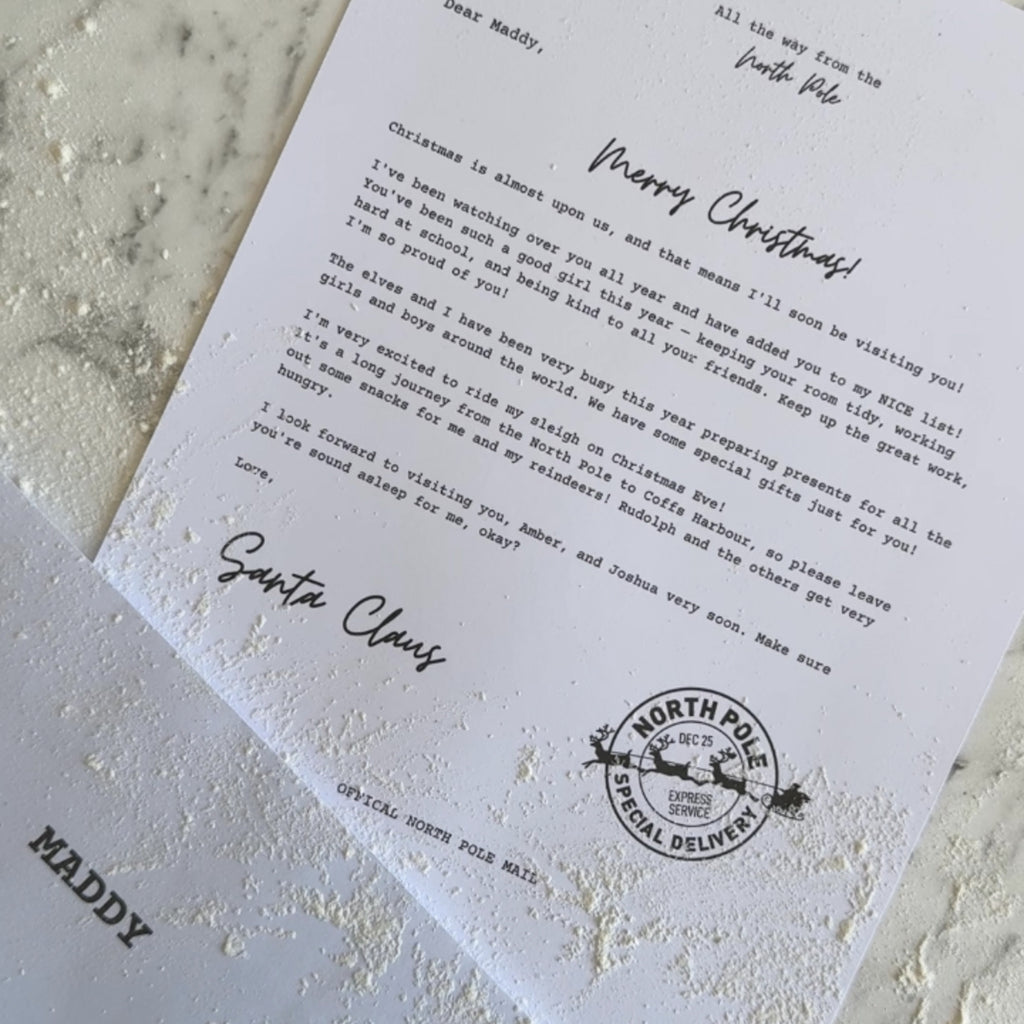 All the way from the
North Pole
Dear Maddy,
Merry Christmas!
Christmas is almost upon us, and that means I'll soon be visiting you!
I've been watching over you all year and have added you to my NICE list!
You've been such a good girl this year – keeping your room tidy, working
hard at school, and being kind to all your friends. Keep up the great work,
I'm so proud of you!
The elves and I have been very busy this year preparing presents for all the
girls and boys around the world. We have some special gifts just for you!
I'm very excited to ride my sleigh on Christmas Eve!
It's a long journey from the North Pole to Coffs Harbour, so please leave
out some snacks for me and my reindeers! Rudolph and the others get very
hungry.
I look forward to visiting you, Amber, and Joshua very soon. Make sure
you're sound asleep for me, okay?
Love,
Santa Claus
NORTH POLE
DEC 25
EXPRESS
SERVICE
SPECIAL DELIVERY
OFFICAL NORTH POLE MAIL
MADDY